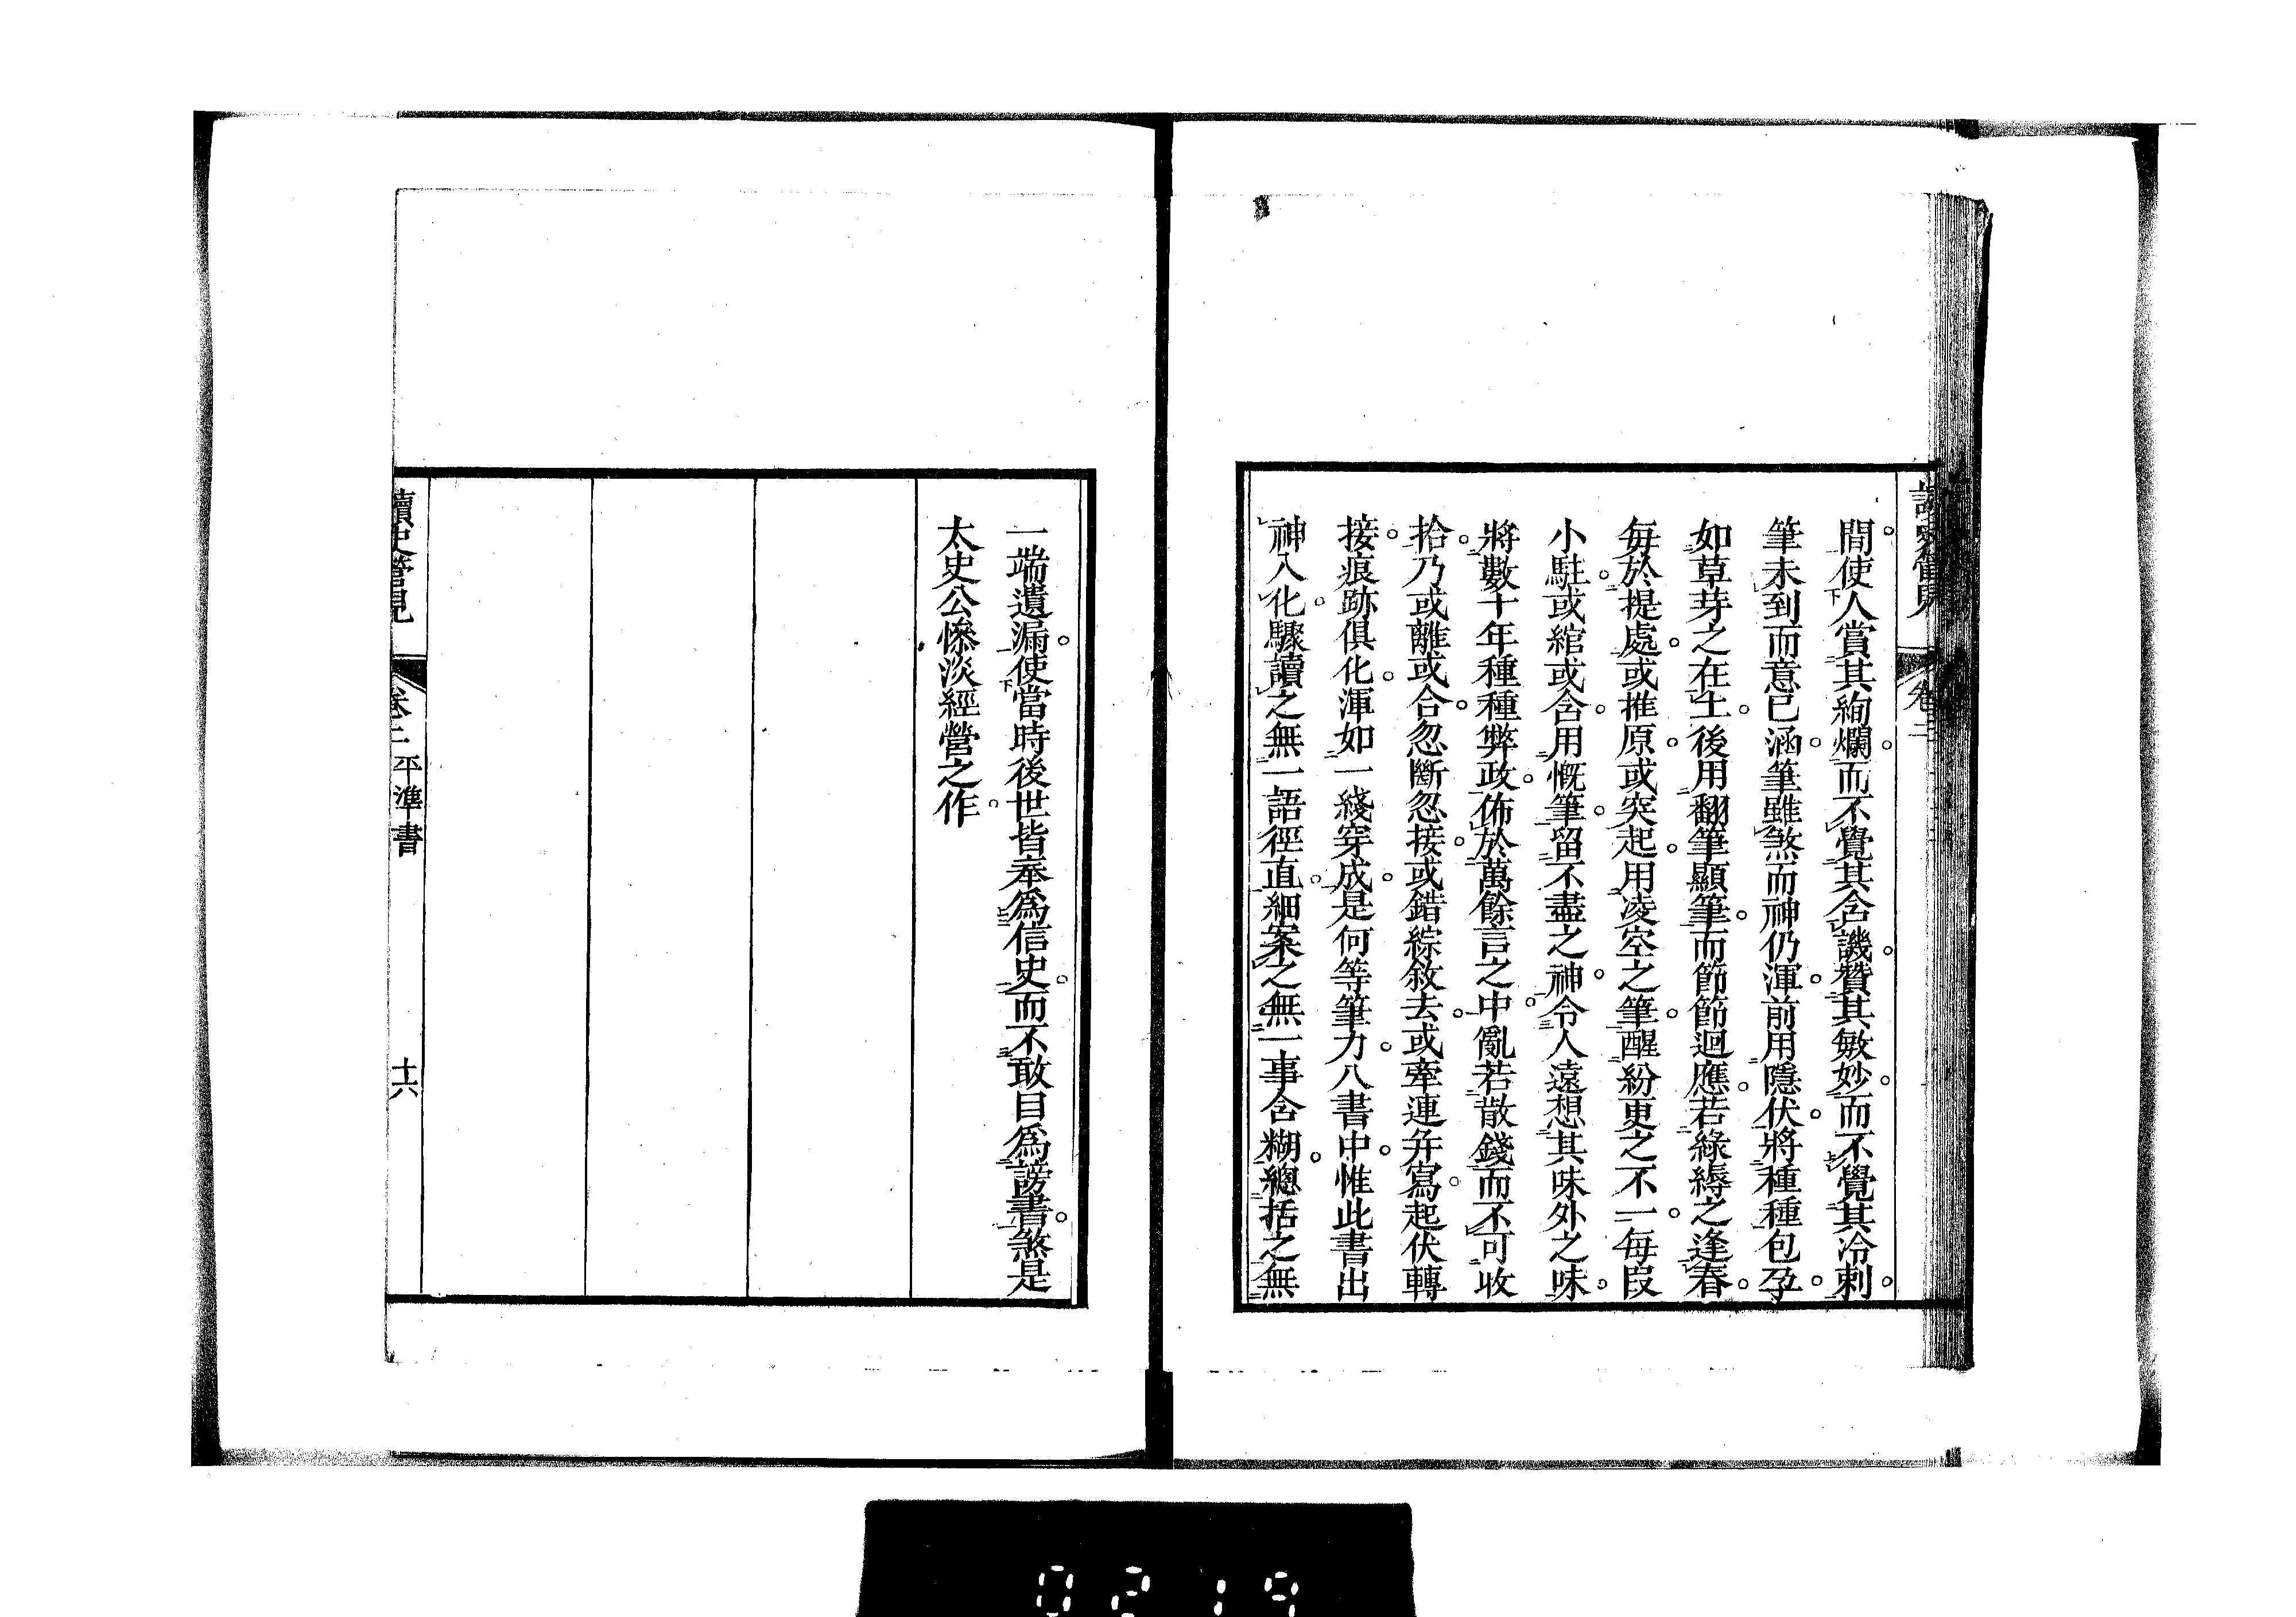 讀史管見
卷二
間使人賞其絢爛而不覺其含譏贊其敏妙而不覺其冷刺
筆未到而意已涵筆雖煞而神仍渾前用隱伏將種種包孕
如草芽之在土後用翻筆顯筆而節節迴應若綠縟之逢春
每於提處或推原或突起用凌空之筆醒紛更之不一每段
小駐或綰或含用慨筆留不盡之神令人遠想其味外之味
將數十年種種弊政佈於萬餘言之中亂若散錢而不可收
拾乃或離或合忽斷忽接或錯綜敘去或牽連并寫起伏轉
接痕跡俱化渾如一綫穿成是何等筆力八書中惟此書出
神入化驟讀之無一語徑直細案之無一事含糊總括之無
一端遺漏使當時後世皆奉爲信史而不敢目爲謗書煞是
太史公慘淡經營之作
讀史管見
卷二 平準書
十六
0219